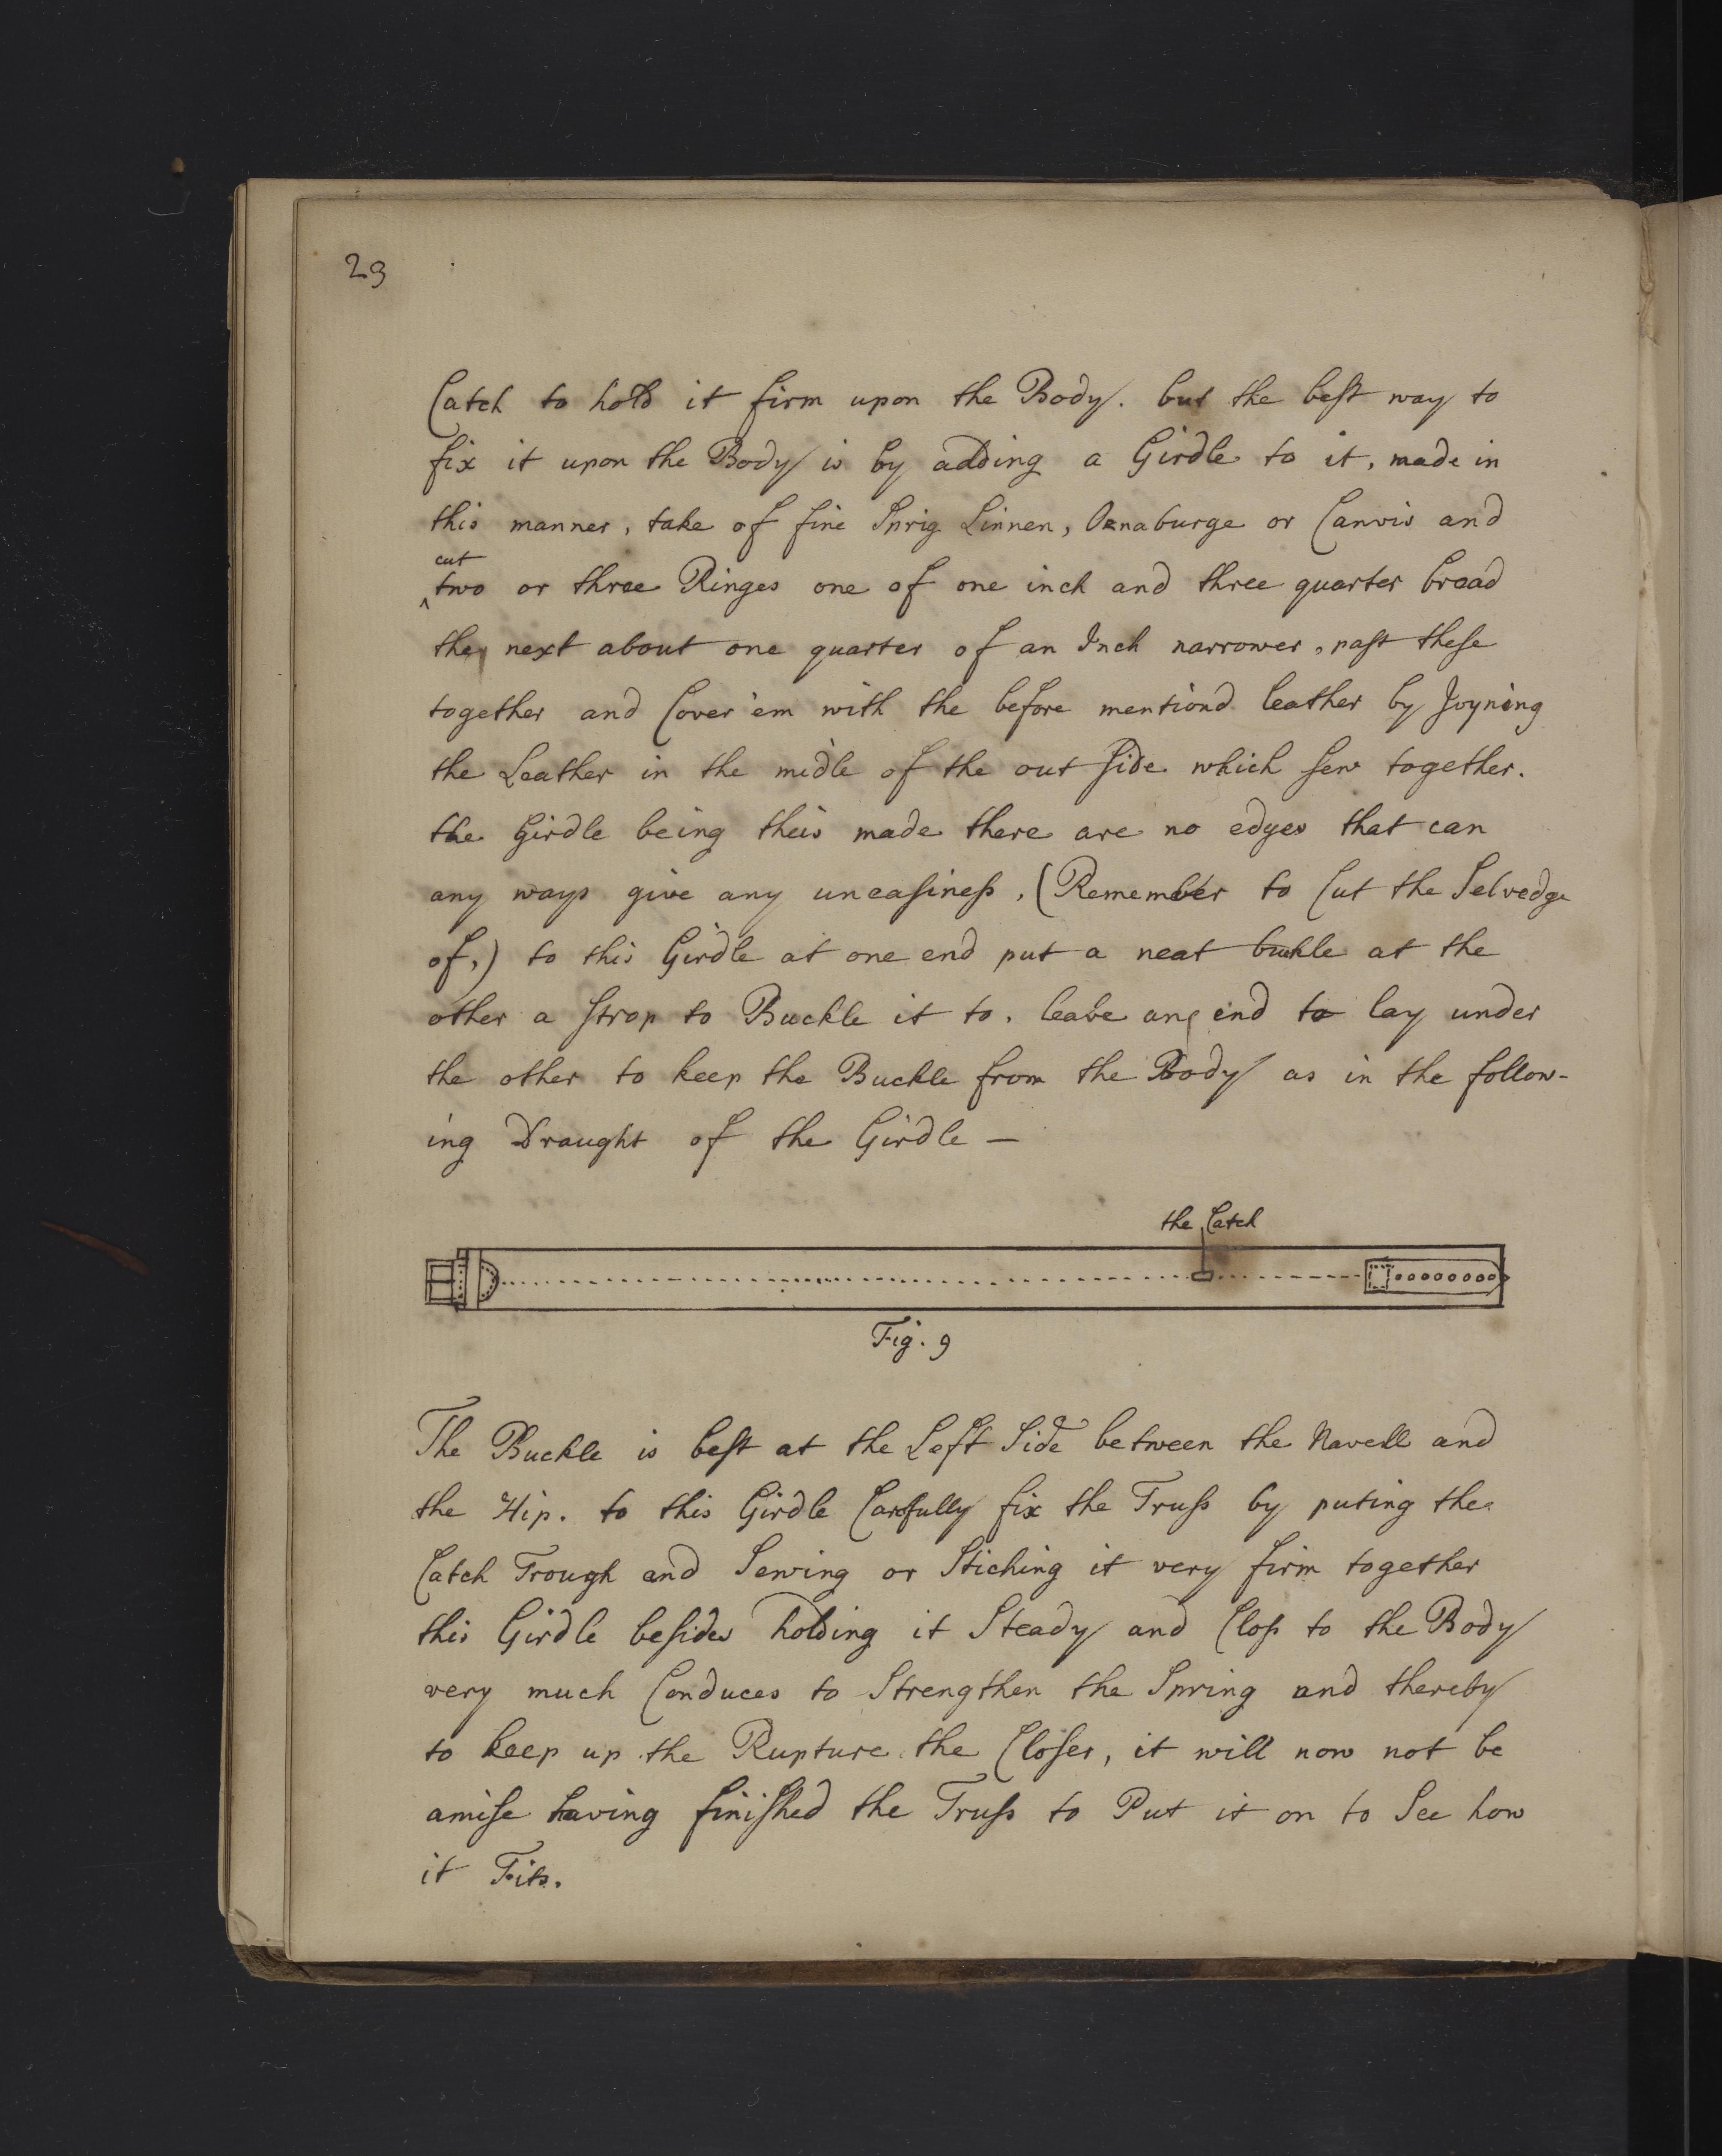 29
Catch to hold it firm upon the Body. but the best way to
fix it upon the Body is by adding a Girdle to it, made in
this manner, take of fine Sprig Linnen, Oznaburge or Canvis and
cut
^two or three Ringes one of one inch and three quarter broad
the next about one quarter of an Inch narrower, past these
together and Cover 'em with the before mentiond leather by Joyning
the Leather in the midle of the out side which sew together.
the Girdle being thus made there are no edges that can
any ways give any uneasiness, (Remember to Cut the Selvedge
of,) to this Girdle at one end put a neat buckle at the
other a strop to Buckle it to. leave an end to lay under
the other to keep the Buckle from the Body as in the follow-
ing Draught of the Girdle —
the Catch
Fig. 9
The Buckle is best at the Left Side between the Navell and
the Hip. to this Girdle Carefully fix the Truss by puting the
Catch Trough and Sewing or Stiching it very firm together
this Girdle besides holding it Steady and Close to the Body
very much Conduces to Strengthen the Spring and thereby
to keep up the Rupture the Closer, it will now not be
amise having finished the Truss to Put it on to See how
it Fits.